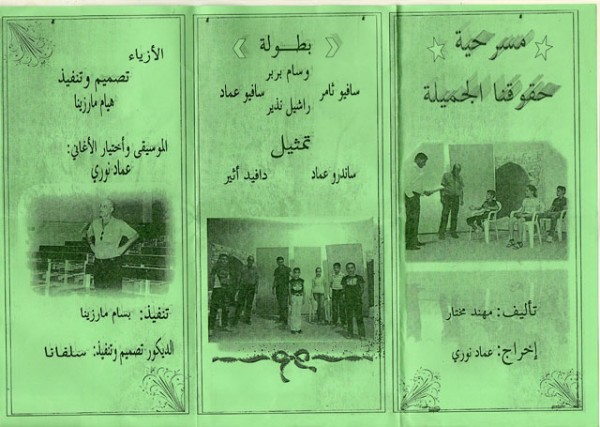 مسرحية
حقوقنا الجميلة
تأليف: مهند مختار
إخراج: عماد نوري
بطولة
وسام بربر
سافيو ثامر
سافيو عماد
راشيل نذير
تمثيل
ساندرو عماد
دافيد أثير
الأزياء
تصميم وتنفيذ
هيام مارزينا
الموسيقى وأختيار الأغاني:
عماد نوري
تنفيذ: بسام مارزينا
الديكور-تصميم وتنفيذ: سلفانا